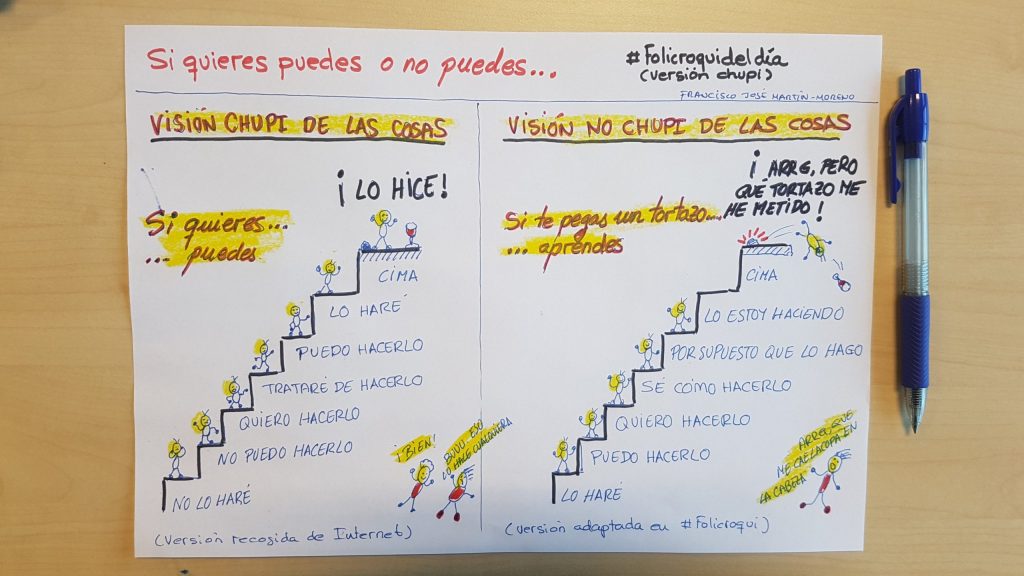 Si quieres puedes o no puedes...
#Folicroquideldía
(versión chupi)
FRANCISCO JOSÉ MARTÍN-MORENO
VISIÓN CHUPI DE LAS COSAS
¡LO HICE!
Si quieres...
... puedes
CIMA
LO HARÉ
PUEDO HACERLO
TRATARÉ DE HACERLO
QUIERO HACERLO
NO PUEDO HACERLO
NO LO HARÉ
¡BIEN!
BUUU... ESO
LO HACE CUALQUIERA
(versión recogida de Internet)
VISIÓN NO CHUPI DE LAS COSAS
¡ARRG, PERO
QUÉ TORTAZO ME
HE METIDO!
Si te pegas un tortazo....
... aprendes
CIMA
LO ESTOY HACIENDO
POR SUPUESTO QUE LO HAGO
SÉ CÓMO HACERLO
QUIERO HACERLO
PUEDO HACERLO
LO HARÉ
ARREA, QUE
ME CAE LA COPA EN
LA CABEZA
(versión adaptada en #Folicroqui)